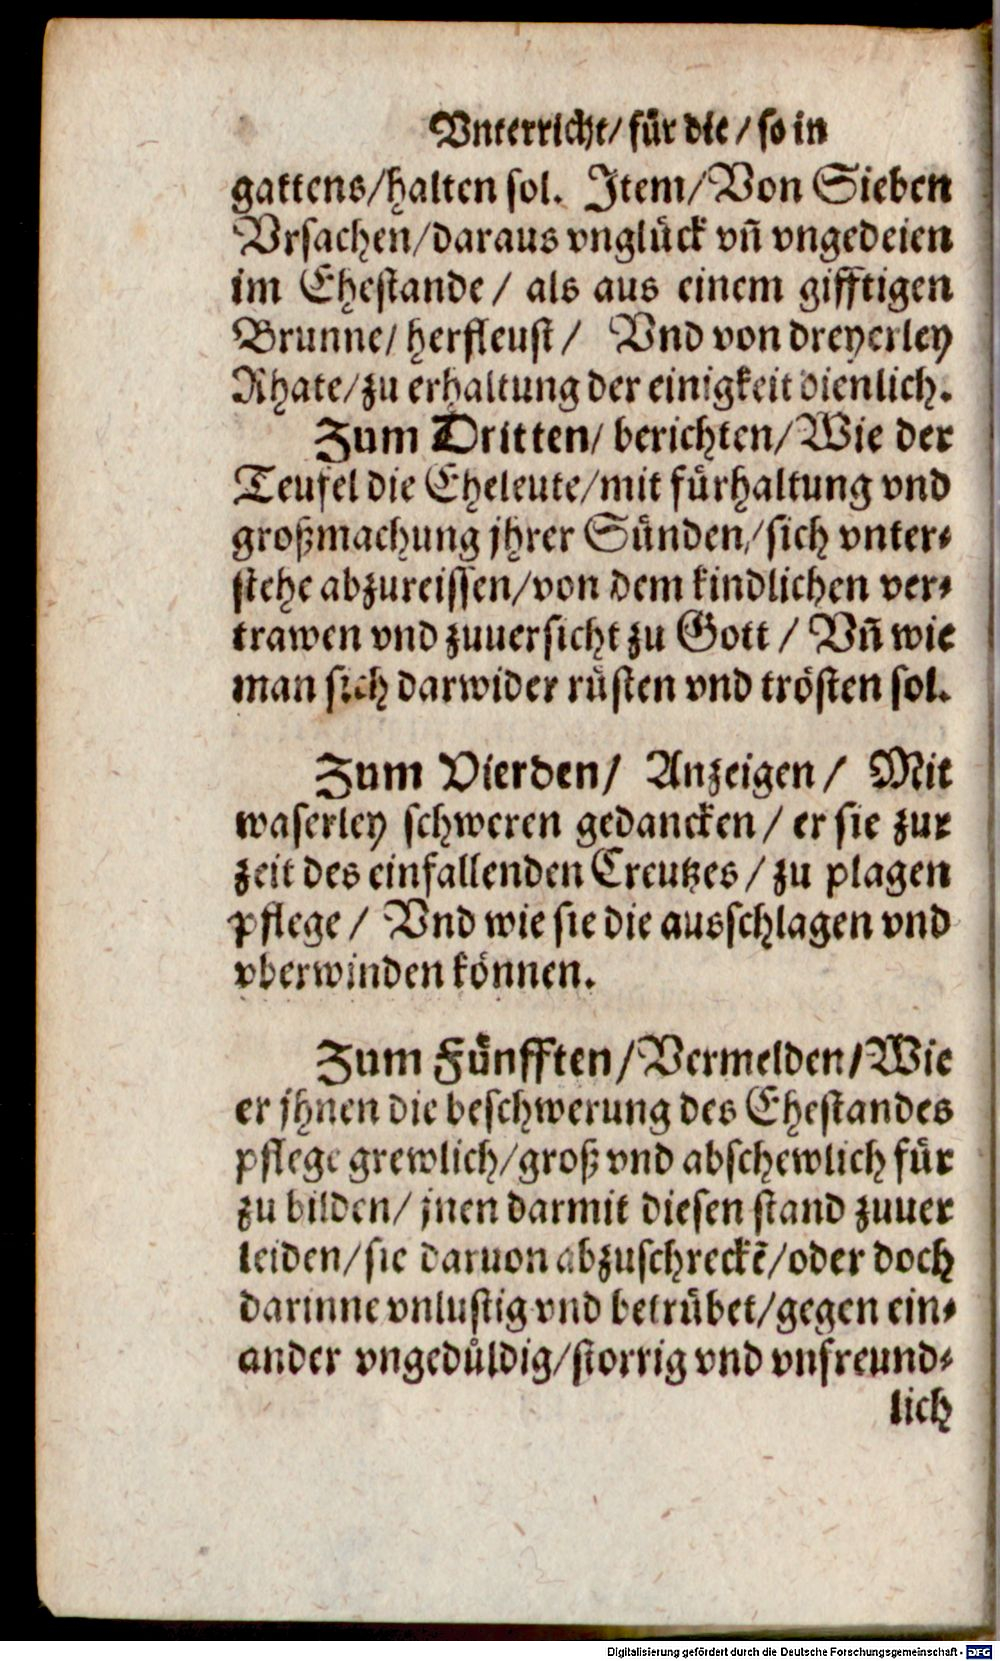 Vnterricht/ für die / so in
gattens/halten sol. Item/Von Sieben
Vrsachen/daraus vnglück vñ vngedeien
im Ehestande / als aus einem gifftigen
Brunne/ herfleust / Vnd von dreyerley
Rhate/zu erhaltung der einigkeit dienlich.
Zum Dritten/ berichten/Wie der
Teufel die Eheleute/mit fürhaltung vnd
großmachung jhrer Sünden/sich vnter-
stehe abzureissen/von dem kindlichen ver-
trawen vnd zuuersicht zu Gott / Vñ wie
man sich darwider rüsten vnd trösten sol.
Zum Vierden/ Anzeigen / Mit
waserley schweren gedancken / er sie zur
zeit des einfallenden Creutzes / zu plagen
pflege / Vnd wie sie die ausschlagen vnd
vberwinden können.
Zum Fünfften/Vermelden/Wie
er jhnen die beschwerung des Ehestandes
pflege grewlich/groß vnd abschewlich für
zu bilden/ jnen darmit diesen stand zuuer
leiden/sie daruon abzuschreckẽ/oder doch
darinne vnlustig vnd betrübet/gegen ein-
ander vngedüldig/storrig vnd vnfreund-
lich
Digitalisierung gefördert durch die Deutsche Forschungsgemeinschaft - DFG